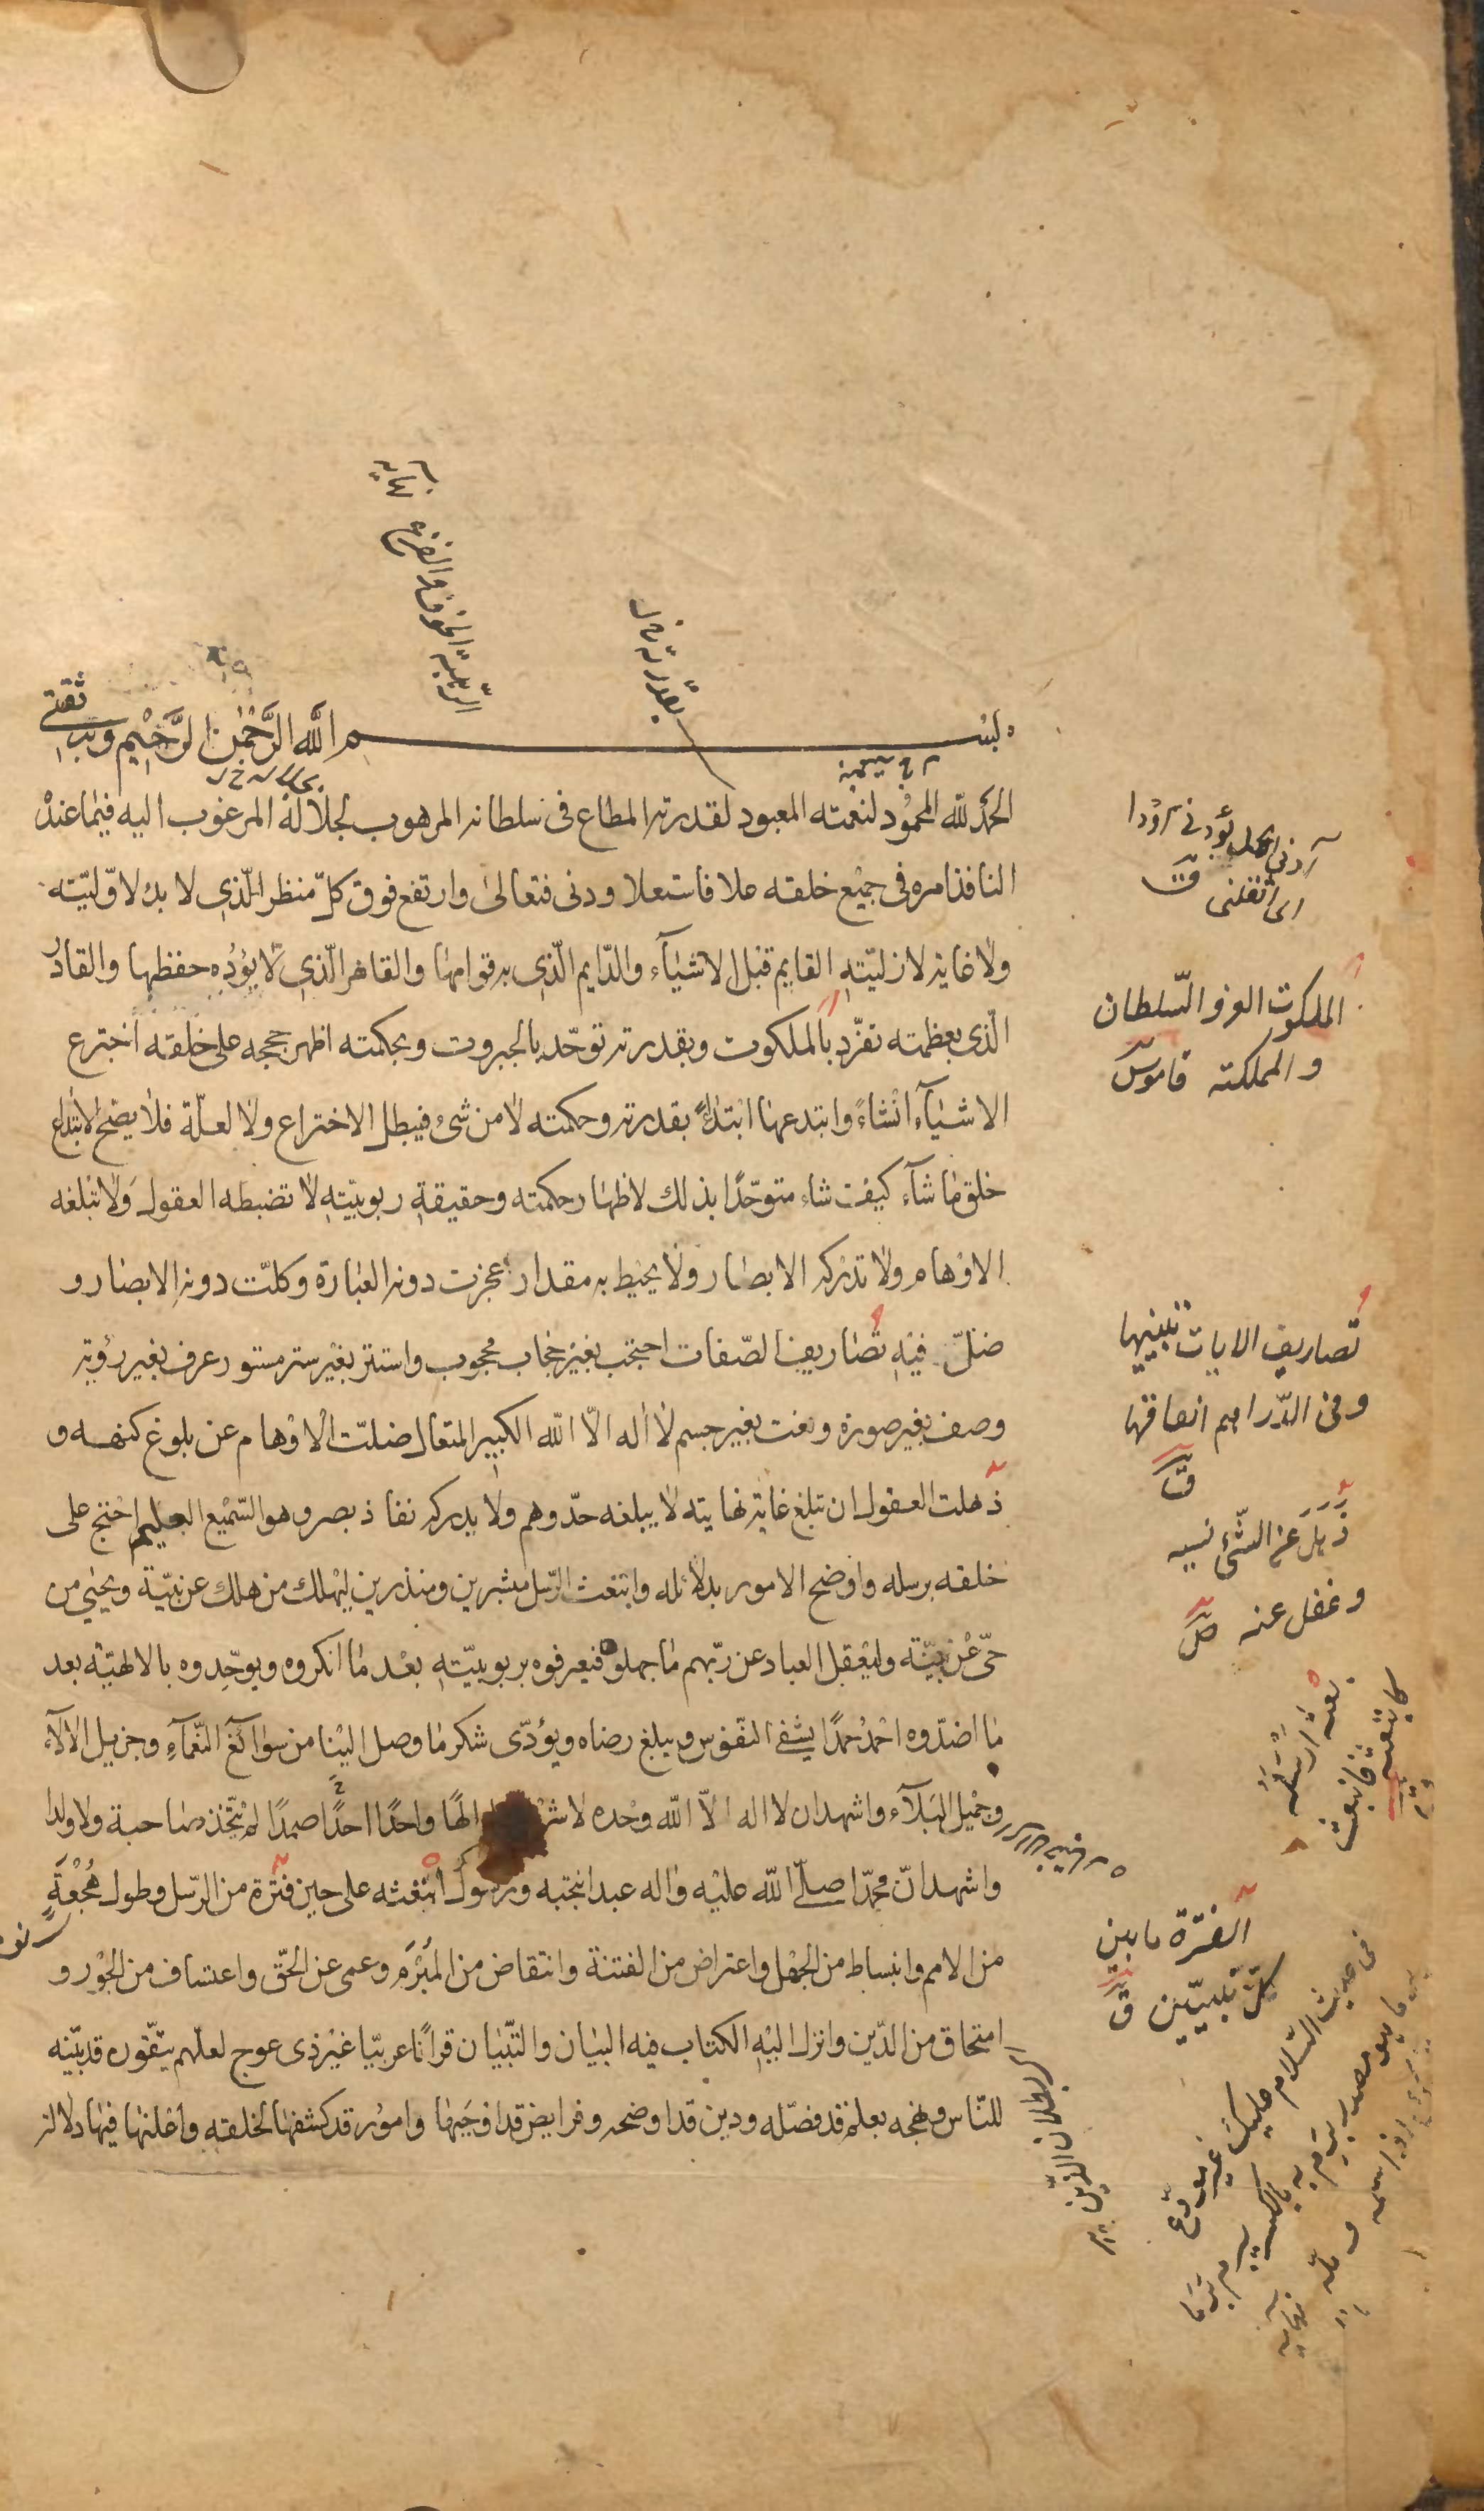 بسم الله الرَّحْمٰن الرَّحِيْم وبه ثقتى
الحمد لله المحمُود لنعمته المعبود لقدرته المطاع فى سلطانه المرهوب لجلاله المرغوب اليه فيما عنده
النافذ امره فى جميْع خلقه علا فاستعلا ودنى فتعالى وارتفع فوق كلّ منظر الّذى لا بدء لاوّليّته
ولا غاية لازليّتهِ القايم قبْل الاشيآء والدّايم الّذى به قوامها والقاهر الّذى لا يؤدُه حفظها والقادر
الّذى بعظمته تفرّد بالملكوت وبقدرته توحّد بالجبروت وبحكمته اظهر حججه على خلقه اخترع
الاشيآء انْشاءً وابتدعها ابْتداءً بقدرته وحكمته لا من شئ فيبطل الاختراع ولا لعلّة فلا يصحّ الابتداع
خلق ما شآء كيف شاء متوحّدًا بذلك لاظهار حكمته وحقيقةِ ربوبيّتهِ لا تضبطه العقول وَلا تبلغه
الاوْهام ولا تدْركه الابصار ولا يحيْط به مقدار عجزت دونه العبارة وكلّت دونه الابصار و
ضلّ فيْهِ تصاريف الصّفات احتجب بغيْر حجاب محجوب واستتر بغيْر ستر مستور عرف بغير رؤية
وصف بغير صورة ونعت بغير جسم لا اله الّا الله الكبير المتعال ضلّت الْاوْهام عن بلوغ كنهه و
ذهلت العقول ان تبلغ غاية نهايته لا يبلغه حدّ وهم ولا يدركه نفاذ بصر وهو السّميْع العليم احْتج على
خلقه برسله واوْضح الامور بدلائله وابتعث الرّسل مبشرين ومنذرين ليهْلك من هلك عن بيّنة ويحيٰى من
حىّ عنْ بيّنة وليعْقل العباد عن ربّهم ما جهلوه فيعرفوه بربوبيّتهِ بعْد ما انكروه ويوحّدوه بالالهيّة بعد
ما اضدّوه احْمدُه حمدًا يشْفى النّفوس ويبلغ رضاه ويؤدّى شكر ما وصل اليْنا من سوابغ النّعْمآءِ وجزيل الالآء
وجميْل البَلآء واشهد ان لا اله الّا الله وحْده لا الهًا واحدًا احدًا صمدًا لمْ يتّخذ صاحبة ولا ولدا
واشهد انّ محمّدا صلّى الله عليْه واله عبد انتجبه ورسول ابْتعثه على حين فتْرة من الرّسل وطول هُجْعَةٍ
من الامم وانبساط من الجهْل واعتراض من الفتنة وانتقاض من المُبْرَم وعمى عن الحقّ واعتساف من الجوْر و
امتحاق من الدّين وانزل اليْهِ الكتاب فيه البيان والتّبْيان قرانًا عربيّا غيْر ذى عوج لعلّهم يتّقون قد بيّنه
للنّاس ونهجه بعلم قد فصّله ودين قد اوضحه وفرايض قد اوْجَبها وامور قد كشفها لخلقه واعْلنها فيها دلالة
الرّهبة الخوف والفزع
نهاية
آدنى الحمل يؤدنى اوْدا
اى اثقلنى ق
الملكوت العز والسّلطان
والمملكته قاموس
تصاريف الايات تبيينها
وفى الدّراهم انفاقها
ق
ذَهَلَ عن الشّئ نسيه
وغفل عنه ص
بعثه ارْسَلَه
كابتعثه فانبعث
ق
الفترة ما بين
كلّ نبيّين ق
البطلان الدّين